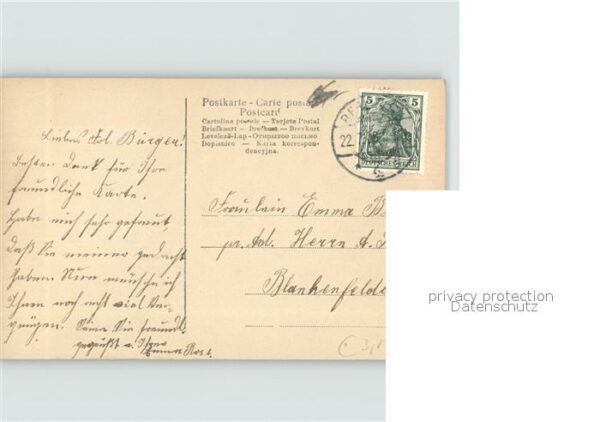 Postkarte - Carte postale
Postcard
Cartolina postale - Tarjeta Postal
Briefkaart - Brefkort - Brevkort
Levelező-Lap - Открытое письмо
Dopisnice - Karta korespon-
dencyjna.
5 5
DEUTSCHES REICH
22.
Liebes Frl. Bürger!
Besten Dank für Ihre
freundliche Karte.
Habe mich sehr gefreut,
daß Sie meiner gedacht
haben. Nun wünsche ich
Ihnen noch recht viel Ver-
gnügen. Seien Sie freundl.
gegrüßt v. Ihrer
Emma
Fräulein Emma B
Herrn A.
Blankenfelde
privacy protection
Datenschutz